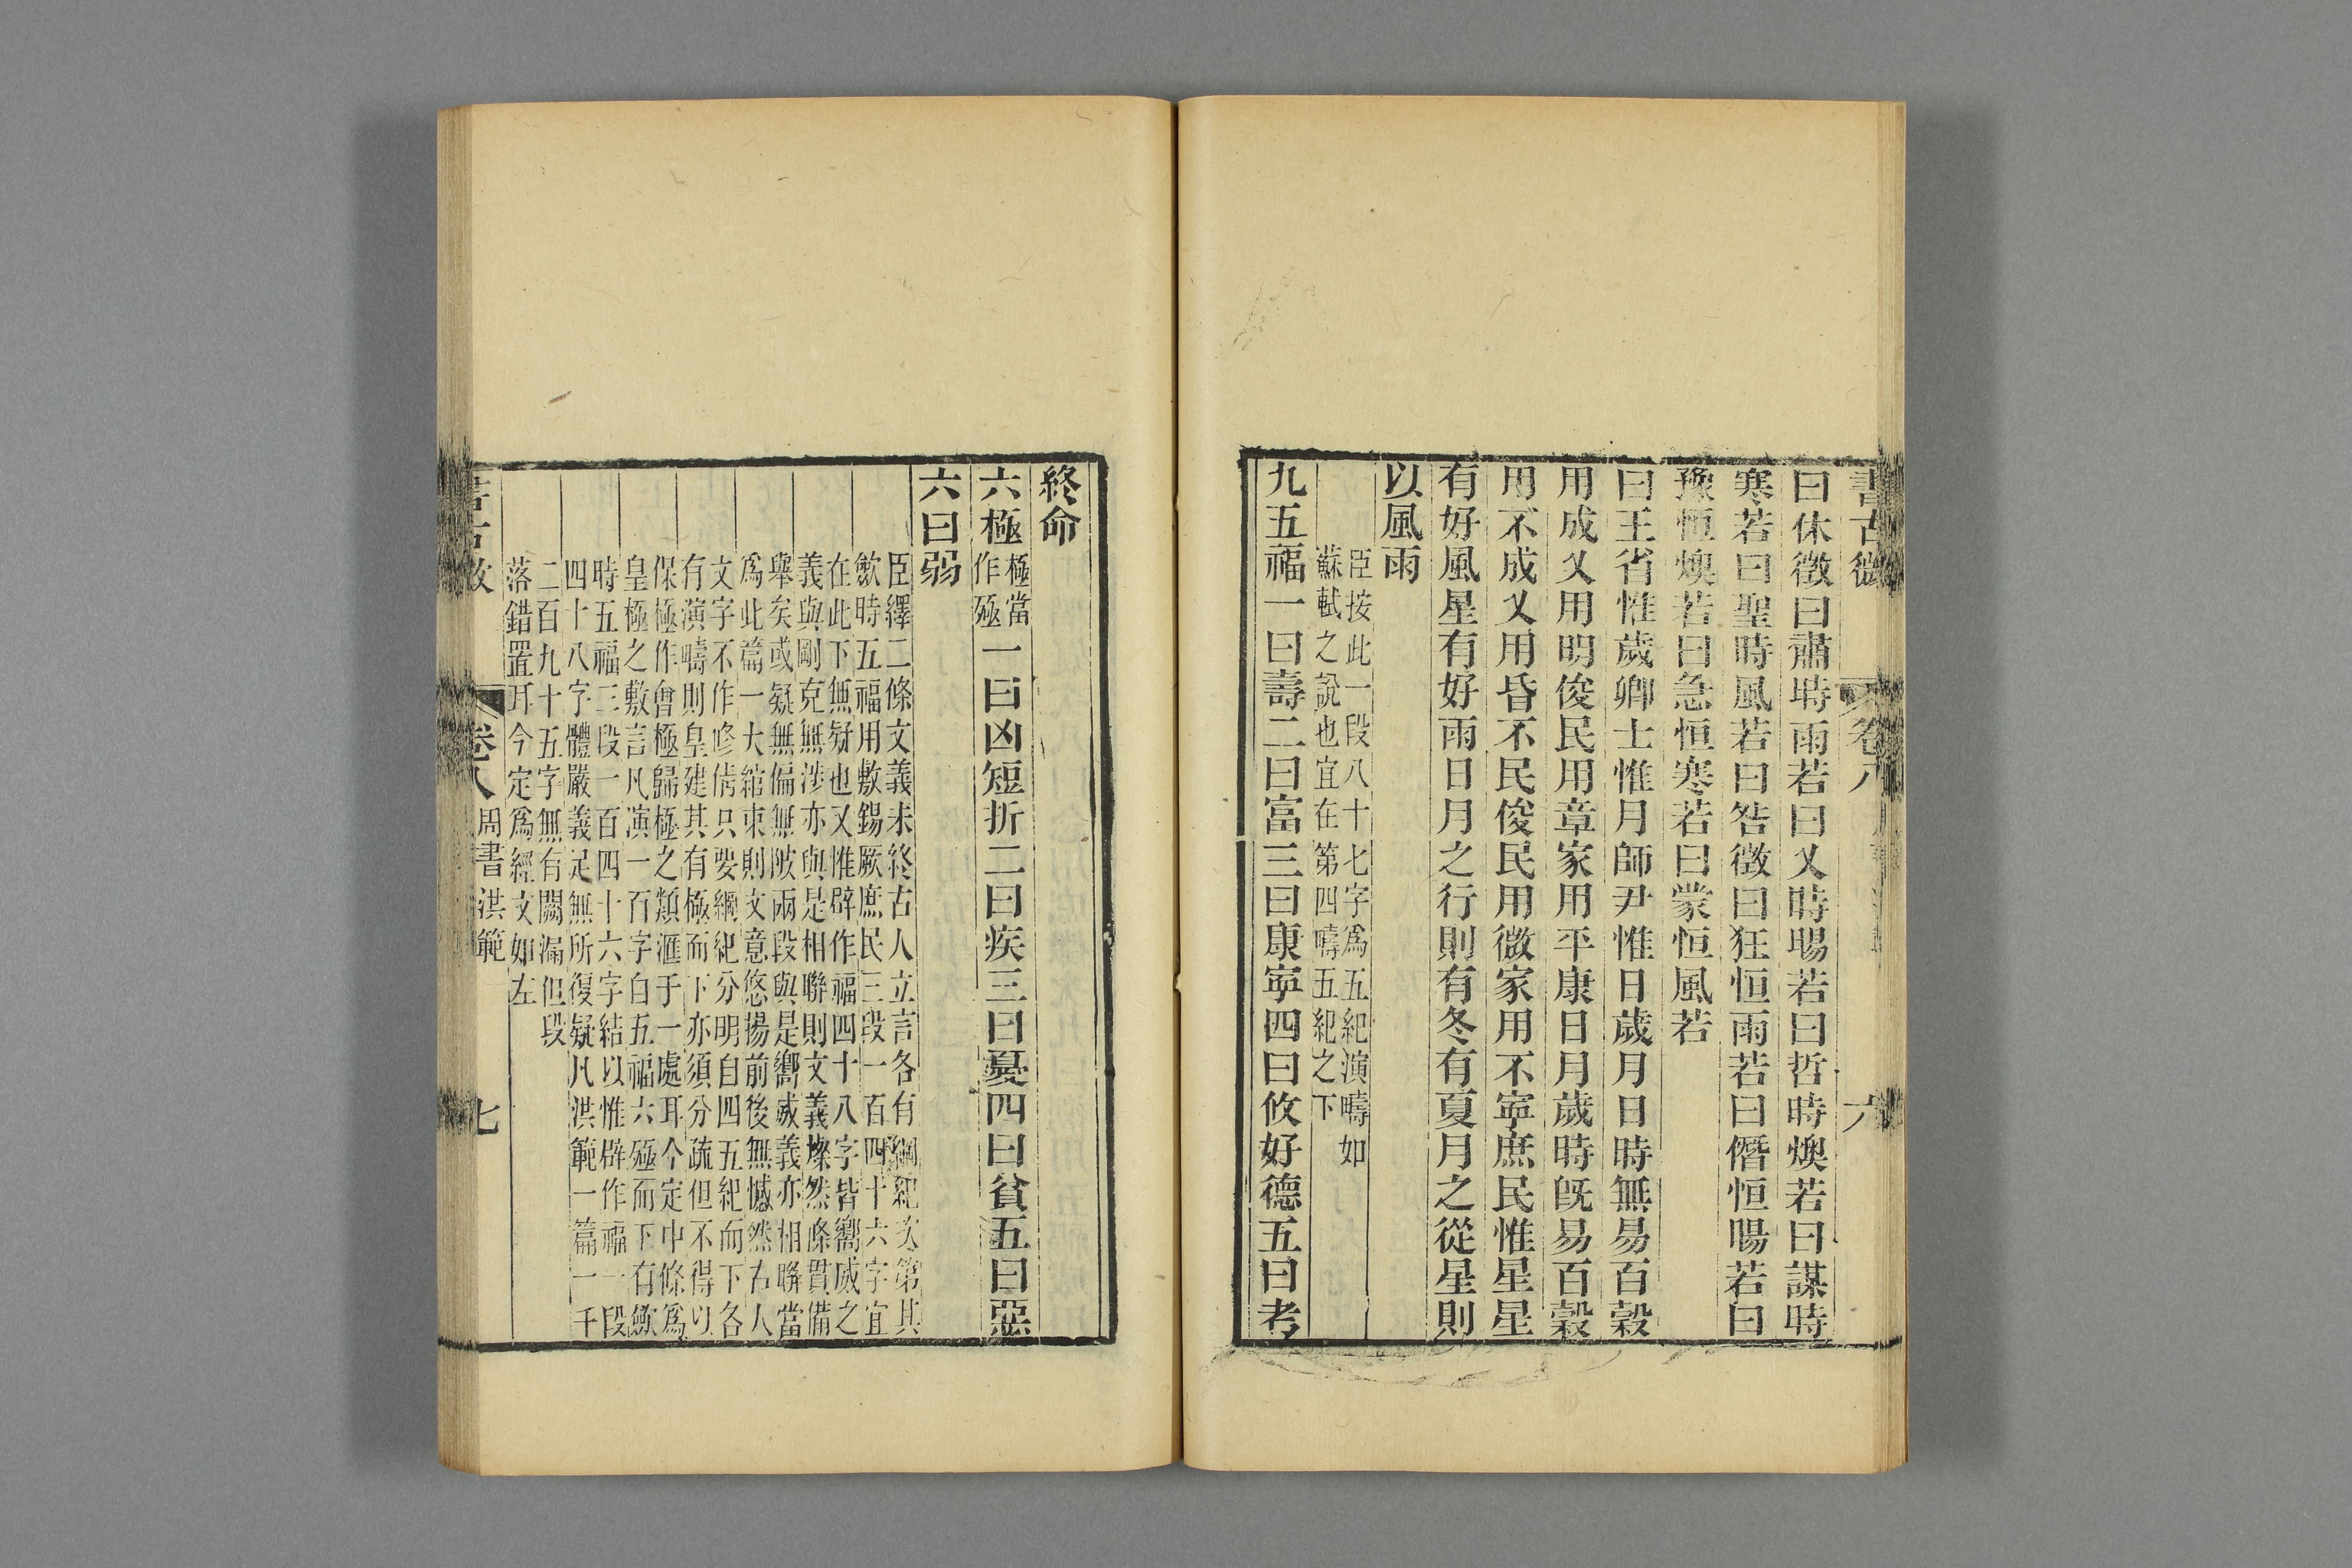 書古微
卷八
六
曰休徵曰肅時雨若曰乂時暘若曰哲時燠若曰謀時
寒若曰聖時風若曰咎徵曰狂恒雨若曰僭恒暘若曰
豫恒燠若曰急恒寒若曰蒙恒風若
曰王省惟歲卿士惟月師尹惟日歲月日時無易百穀
用成乂用明俊民用章家用平康日月歲時旣易百穀
用不成乂用昏不民俊民用微家用不寜庶民惟星星
有好風星有好雨日月之行則有冬有夏月之從星則
以風雨
臣按此一段八十七字爲五紀演疇如
蘇軾之說也宜在第四疇五紀之下
九五福一曰壽二曰富三曰康寜四曰攸好德五曰考
終命
六極
極當
作殛
一曰凶短折二曰疾三曰憂四曰貧五曰惡
六曰弱
臣繹二條文義未終古人立言各有綱紀次第其
歛時五福用敷錫厥庶民三段一百四十六字宜
在此下無疑也又惟辟作福四十八字皆嚮威之
義與剛克無涉亦與是相聯則文義燦然條貫備
舉矣或疑無偏無陂兩段與是嚮威義亦相聯當
爲此篇一大綰束則文意悠揚前後無憾然古人
文字不作修偆只要綱紀分明自四五紀而下各
有演疇則皇建其有極而下亦須分疏但不得以
保極作會極歸極之類滙于一處耳今定中條爲
皇極之敷言凡演一百字自五福六殛而下有歛
時五福三段一百四十六字結以惟辟作福一段
四十八字體嚴義足無所復疑凡洪範一篇一千
二百九十五字無有闕漏但段
落錯置耳今定爲經文如左
書古微
卷八
周書洪範
七